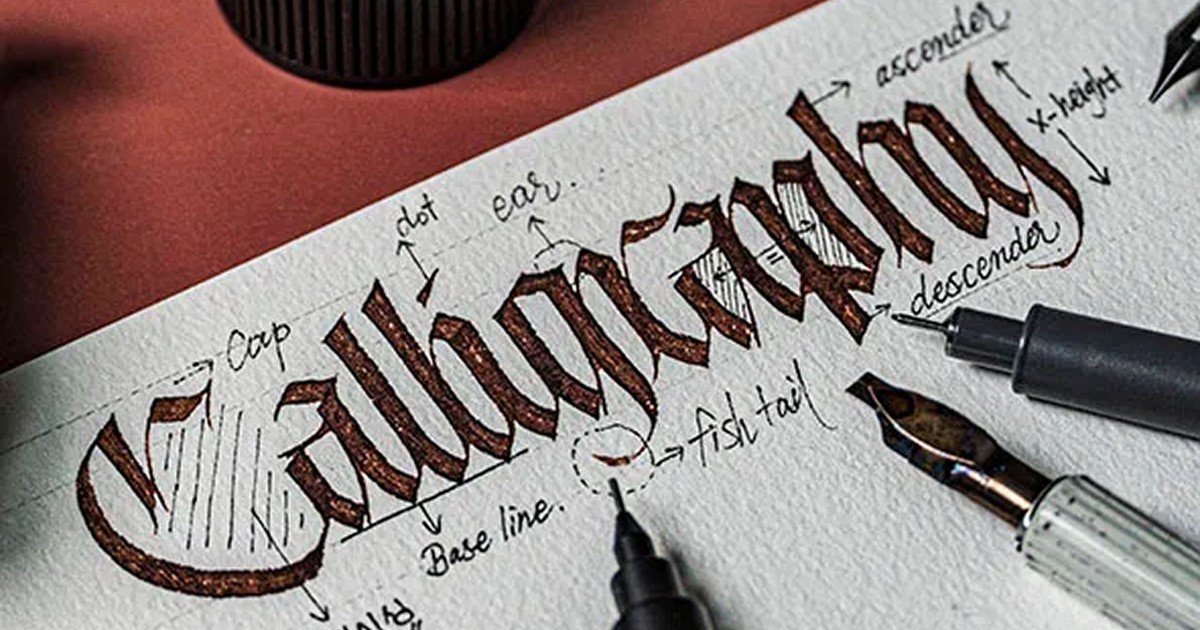 ascender
x-height
dot
ear...
Cap
Calligraphy
descender
fish tail
Base line.